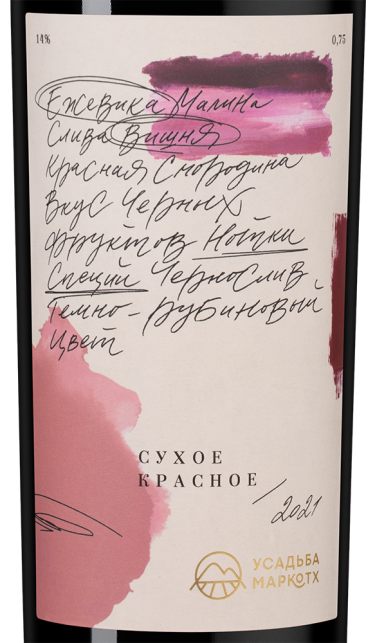 14%
0,75
Ежевика Малина
Слива Вишня
Красная Смородина
Вкус Черных
фруктов Нотки
Специй Чернослив
Темно-рубиновый
цвет
СУХОЕ
КРАСНОЕ
/2021
УСАДЬБА
МАРКОТХ